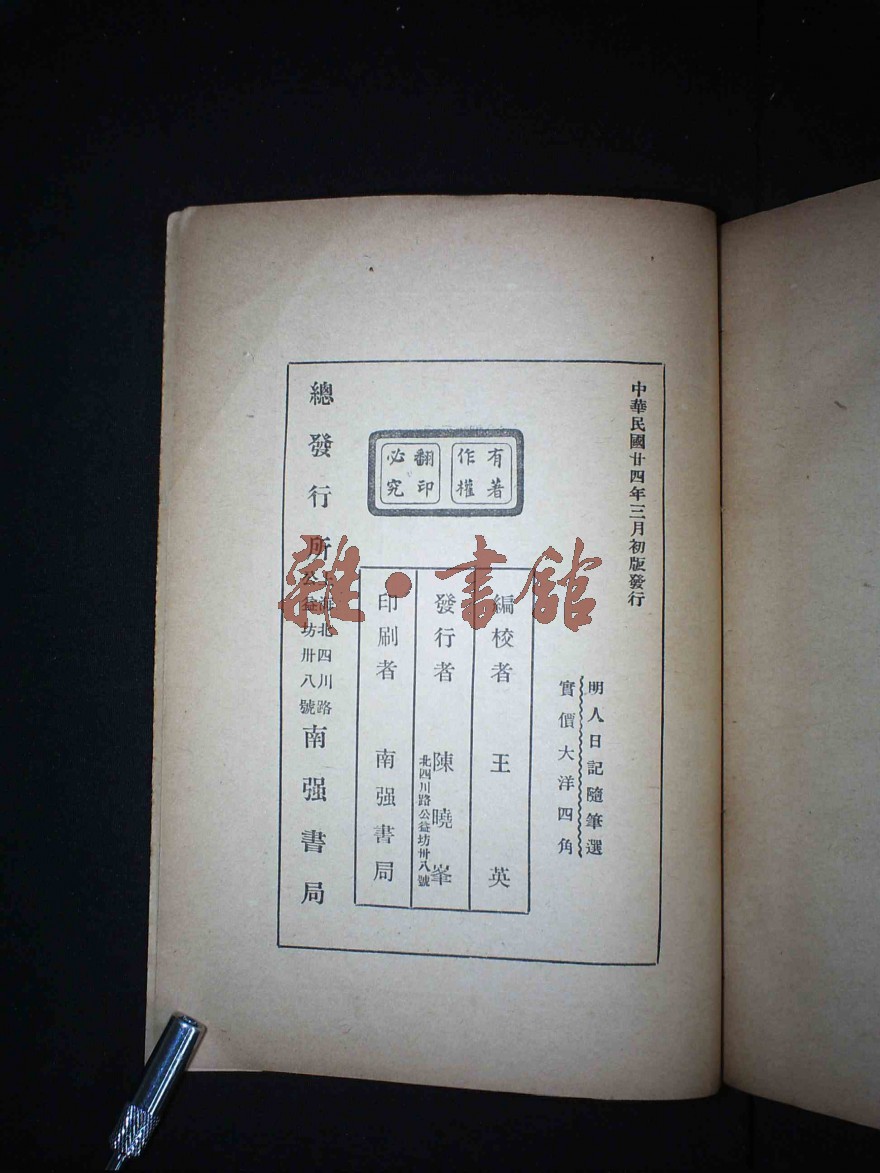 中華民國廿四年三月初版發行
明人日記隨筆選
實價大洋四角
有著
作權
翻印
必究
編校者 王英
發行者 陳曉峯
北四川路公益坊卅八號
印刷者 南强書局
總發行所
上海北四川路
公益坊卅八號
南强書局
雜·書館